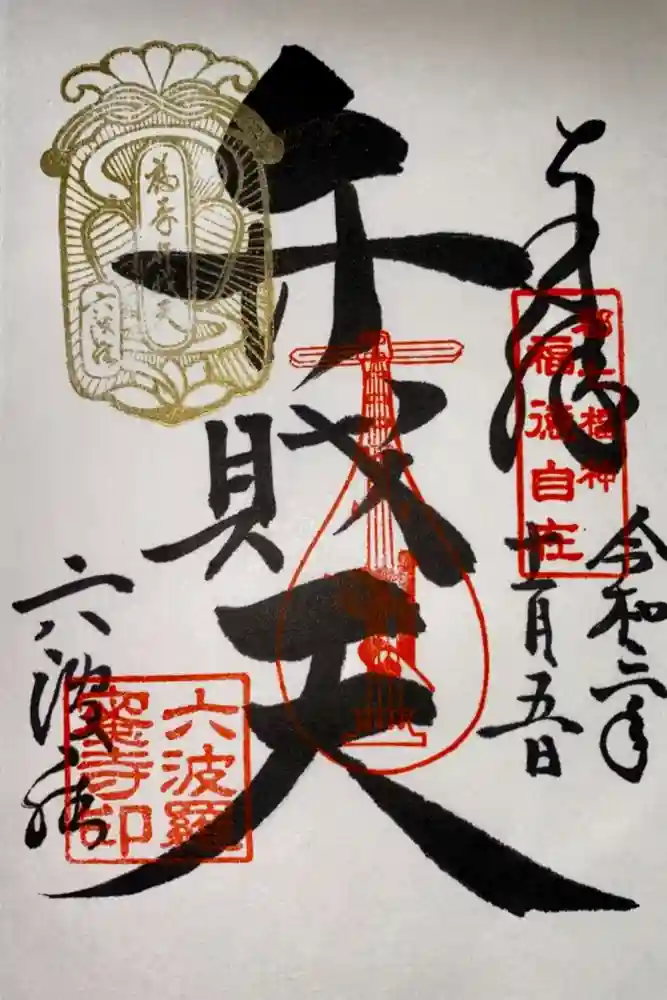 奉拝
都七福神
福徳自在
令和二年
十一月五日
弁財天
六波羅
六波羅
蜜寺印
六波羅